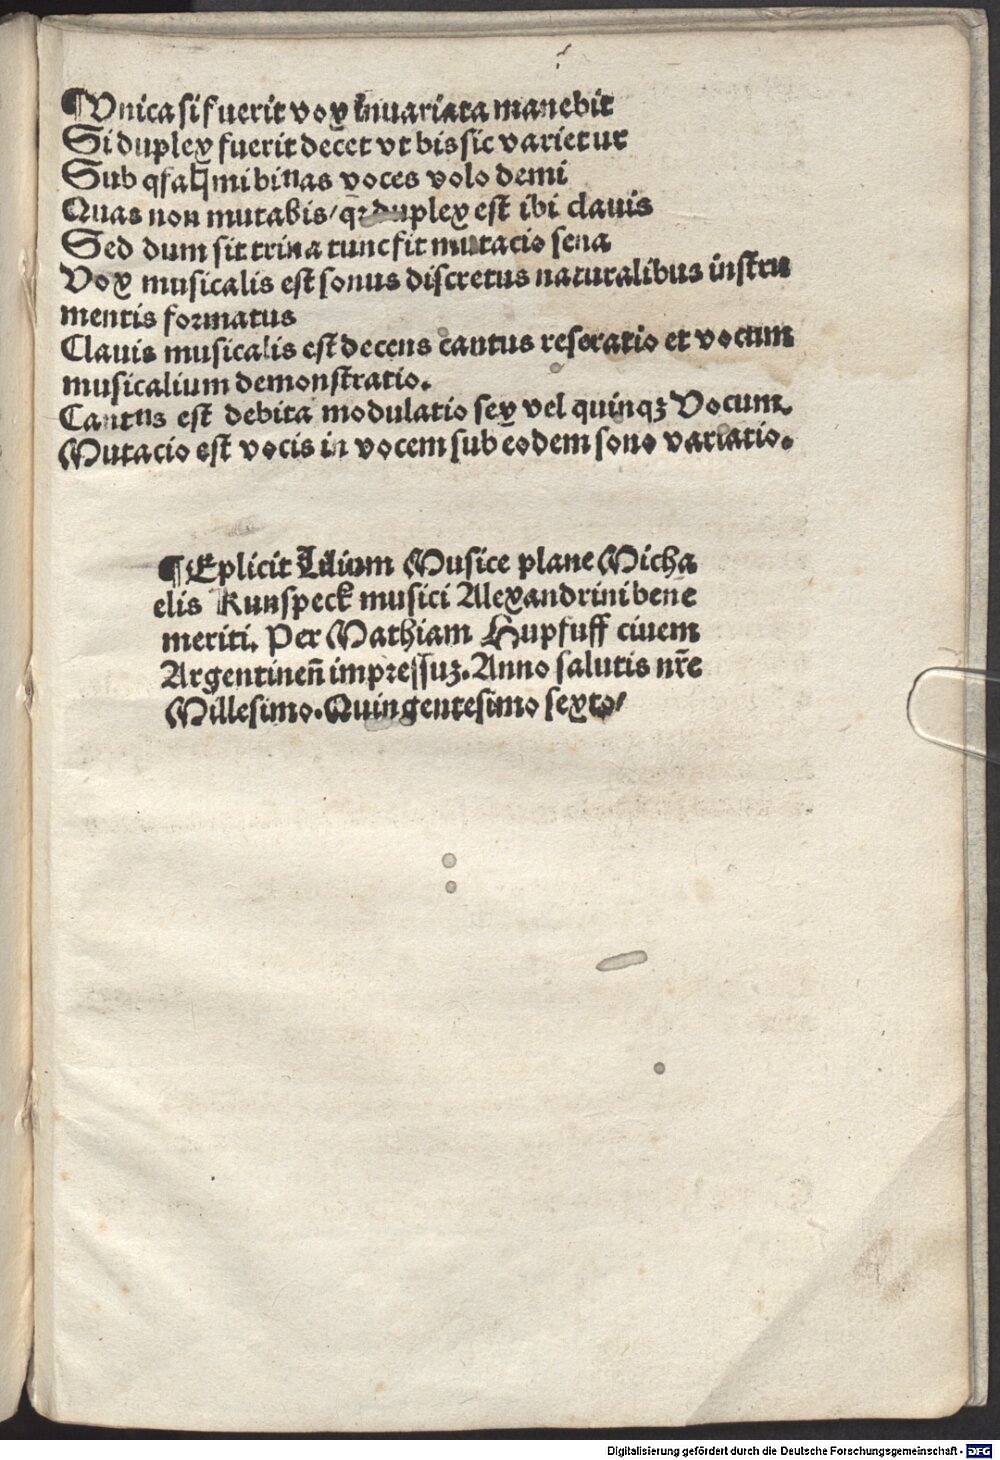 ¶Vnica si fuerit vox inuariata manebit
Si duplex fuerit decet vt bis sic varietur
Sub qfa ♮mi binas voces volo demi
Quas non mutabis/ qꝛ duplex est ibi clauis
Sed dum sit trina tunc fit mutacio sena
Vox musicalis est sonus discretus naturalibus instru
mentis formatus
Clauis musicalis est decens cantus reseratio et vocum
musicalium demonstratio.
Cantus est debita modulatio sex vel quinqꝫ Vocum.
Mutacio est vocis in vocem sub eodem sono variatio.
¶Explicit Lilium Musice plane Micha
elis Kunspeck musici Alexandrini bene
meriti. Per Mathiam Hupfuff ciuem
Argentineñ impressuꝫ. Anno salutis nr̄e
Millesimo. Quingentesimo sexto/
Digitalisierung gefördert durch die Deutsche Forschungsgemeinschaft - DFG